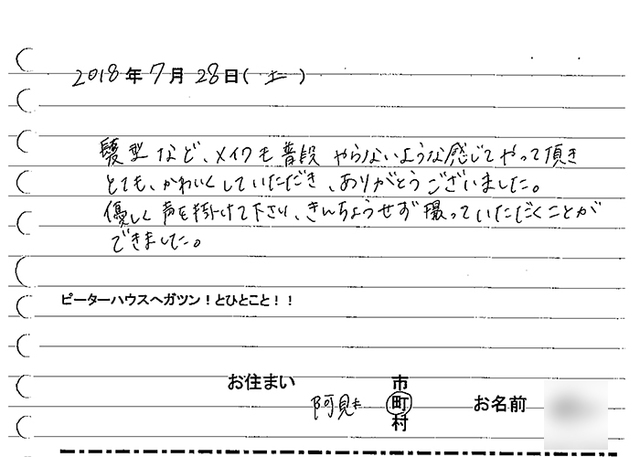 2018年7月28日(土)
髪型など、メイクも普段やらないような感じでやって頂き
とても、かわいくしていただき、ありがとうございました。
優しく声を掛けて下さり、きんちょうせず撮っていただくことが
できました。
ピーターハウスへガツン!とひとこと!!
お住まい
阿見
市
町
村
お名前